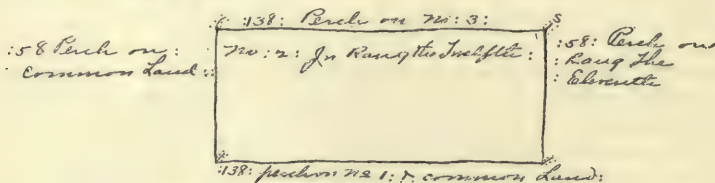 :138: Perch on No: 3:
:58 Perch on:
common Land:
No: 2: In Rang the Twelfth:
:58: Perch on
: Rang The
: Eleventh
:138: perch on No 1: & common Land: